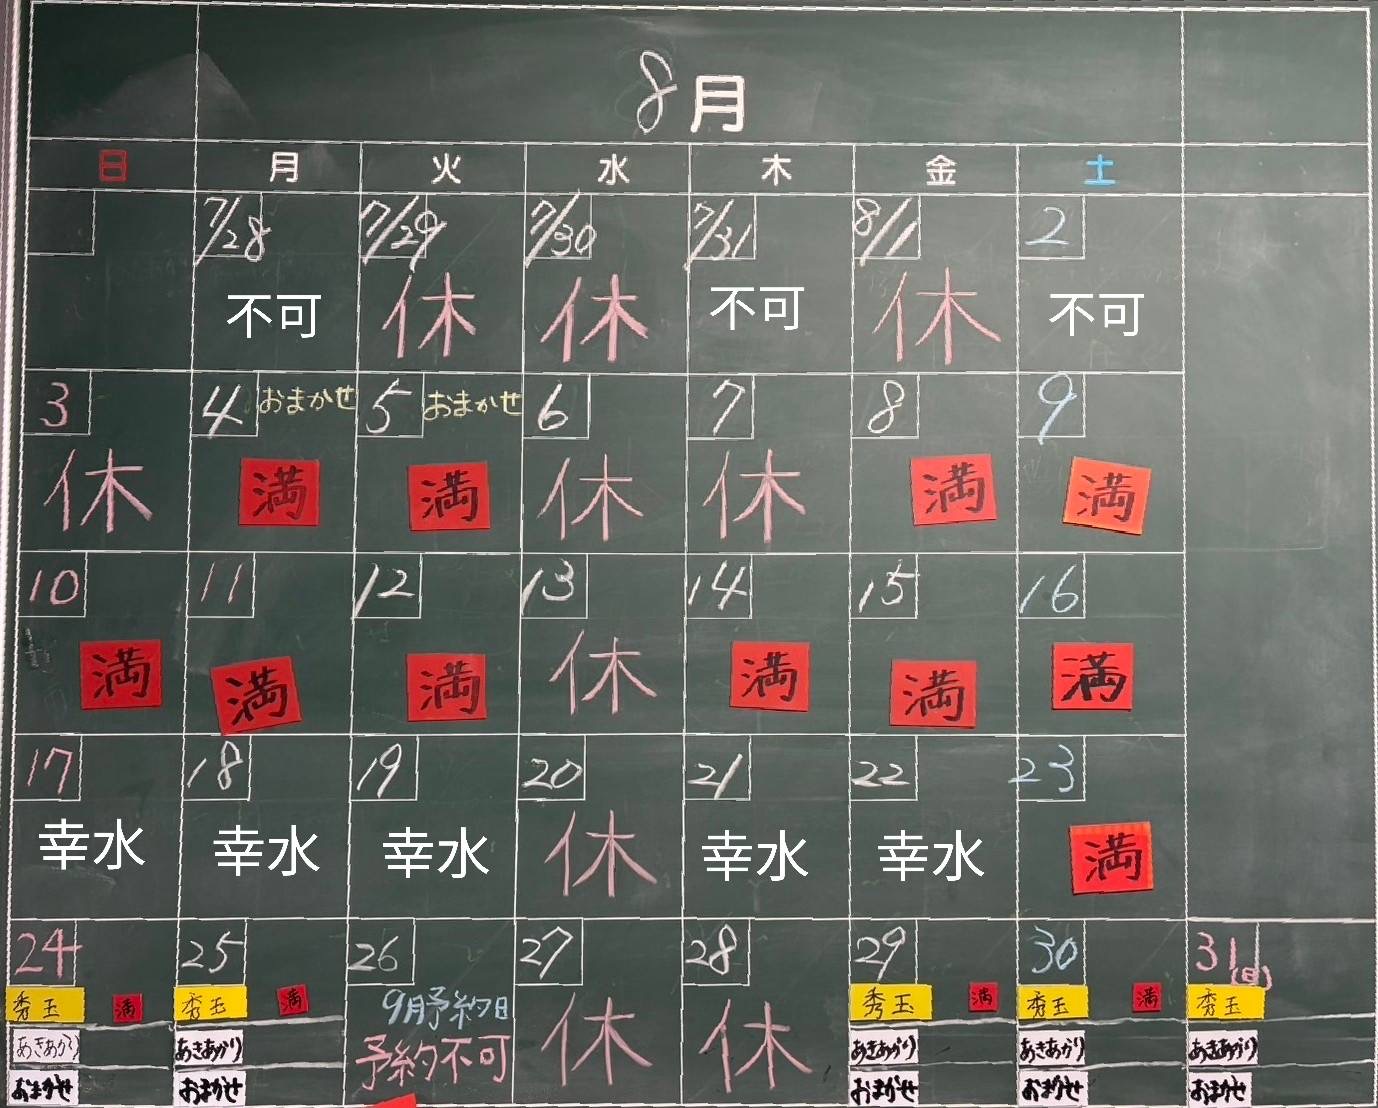 8月
日 月 火 水 木 金 土
7/28 7/29 7/30 7/31 8/1 2
不可 休 休 不可 休 不可
3 4 おまかせ 5 おまかせ 6 7 8 9
休 満 満 休 休 満 満
10 11 12 13 14 15 16
満 満 満 休 満 満 満
17 18 19 20 21 22 23
幸水 幸水 幸水 休 幸水 幸水 満
24 25 26 27 28 29 30 31(日)
秀玉 満 秀玉 満 9月予約日 休 休 秀玉 満 秀玉 満 秀玉
あきあかり あきあかり 予約不可 あきあかり あきあかり あきあかり
おまかせ おまかせ おまかせ おまかせ おまかせ